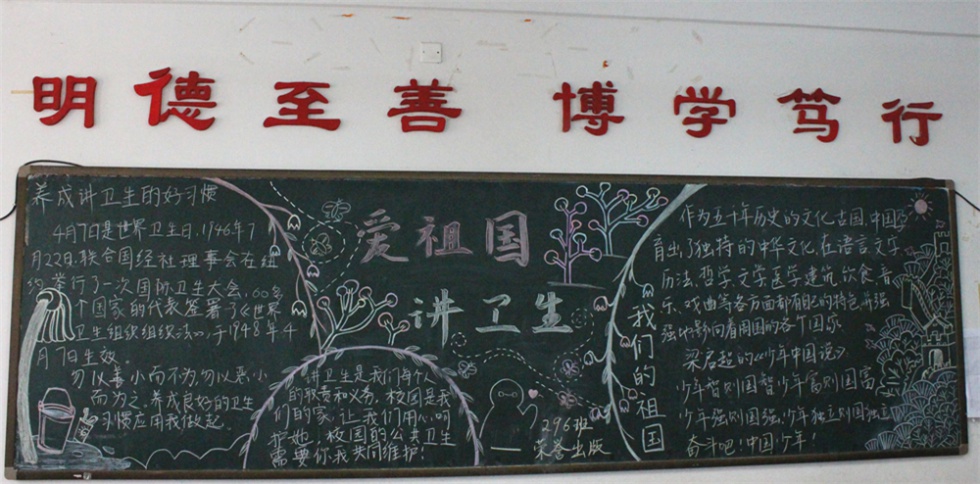 明德至善 博学笃行
养成讲卫生的好习惯
4月7日是世界卫生日,1946年7
月22日,联合国经社理事会在纽
约举行了一次国际卫生大会,60多
个国家的代表签署了《世界
卫生组织组织法》,于1948年4
月7日生效。
勿以善小而不为,勿以恶小
而为之,养成良好的卫生
习惯应用我做起。
爱祖国
讲卫生
讲卫生是我们每个人
的职责和义务,校园是我
们的家,让我们用心呵
护她,校园的公共卫生
需要你我共同维护!
296班
荣誉出版
我们的祖国
作为五千年历史的文化古国,中国
育出了独特的中华文化,在语言,文字,
历法,哲学,文学,医学,建筑,饮食,音
乐,戏曲等各方面都有自己的特色,并强
强地影向着周围的各个国家
梁启超的《少年中国说》
少年智则国智,少年富则国富,
少年强则国强,少年独立则国独立
奋斗吧!中国少年!